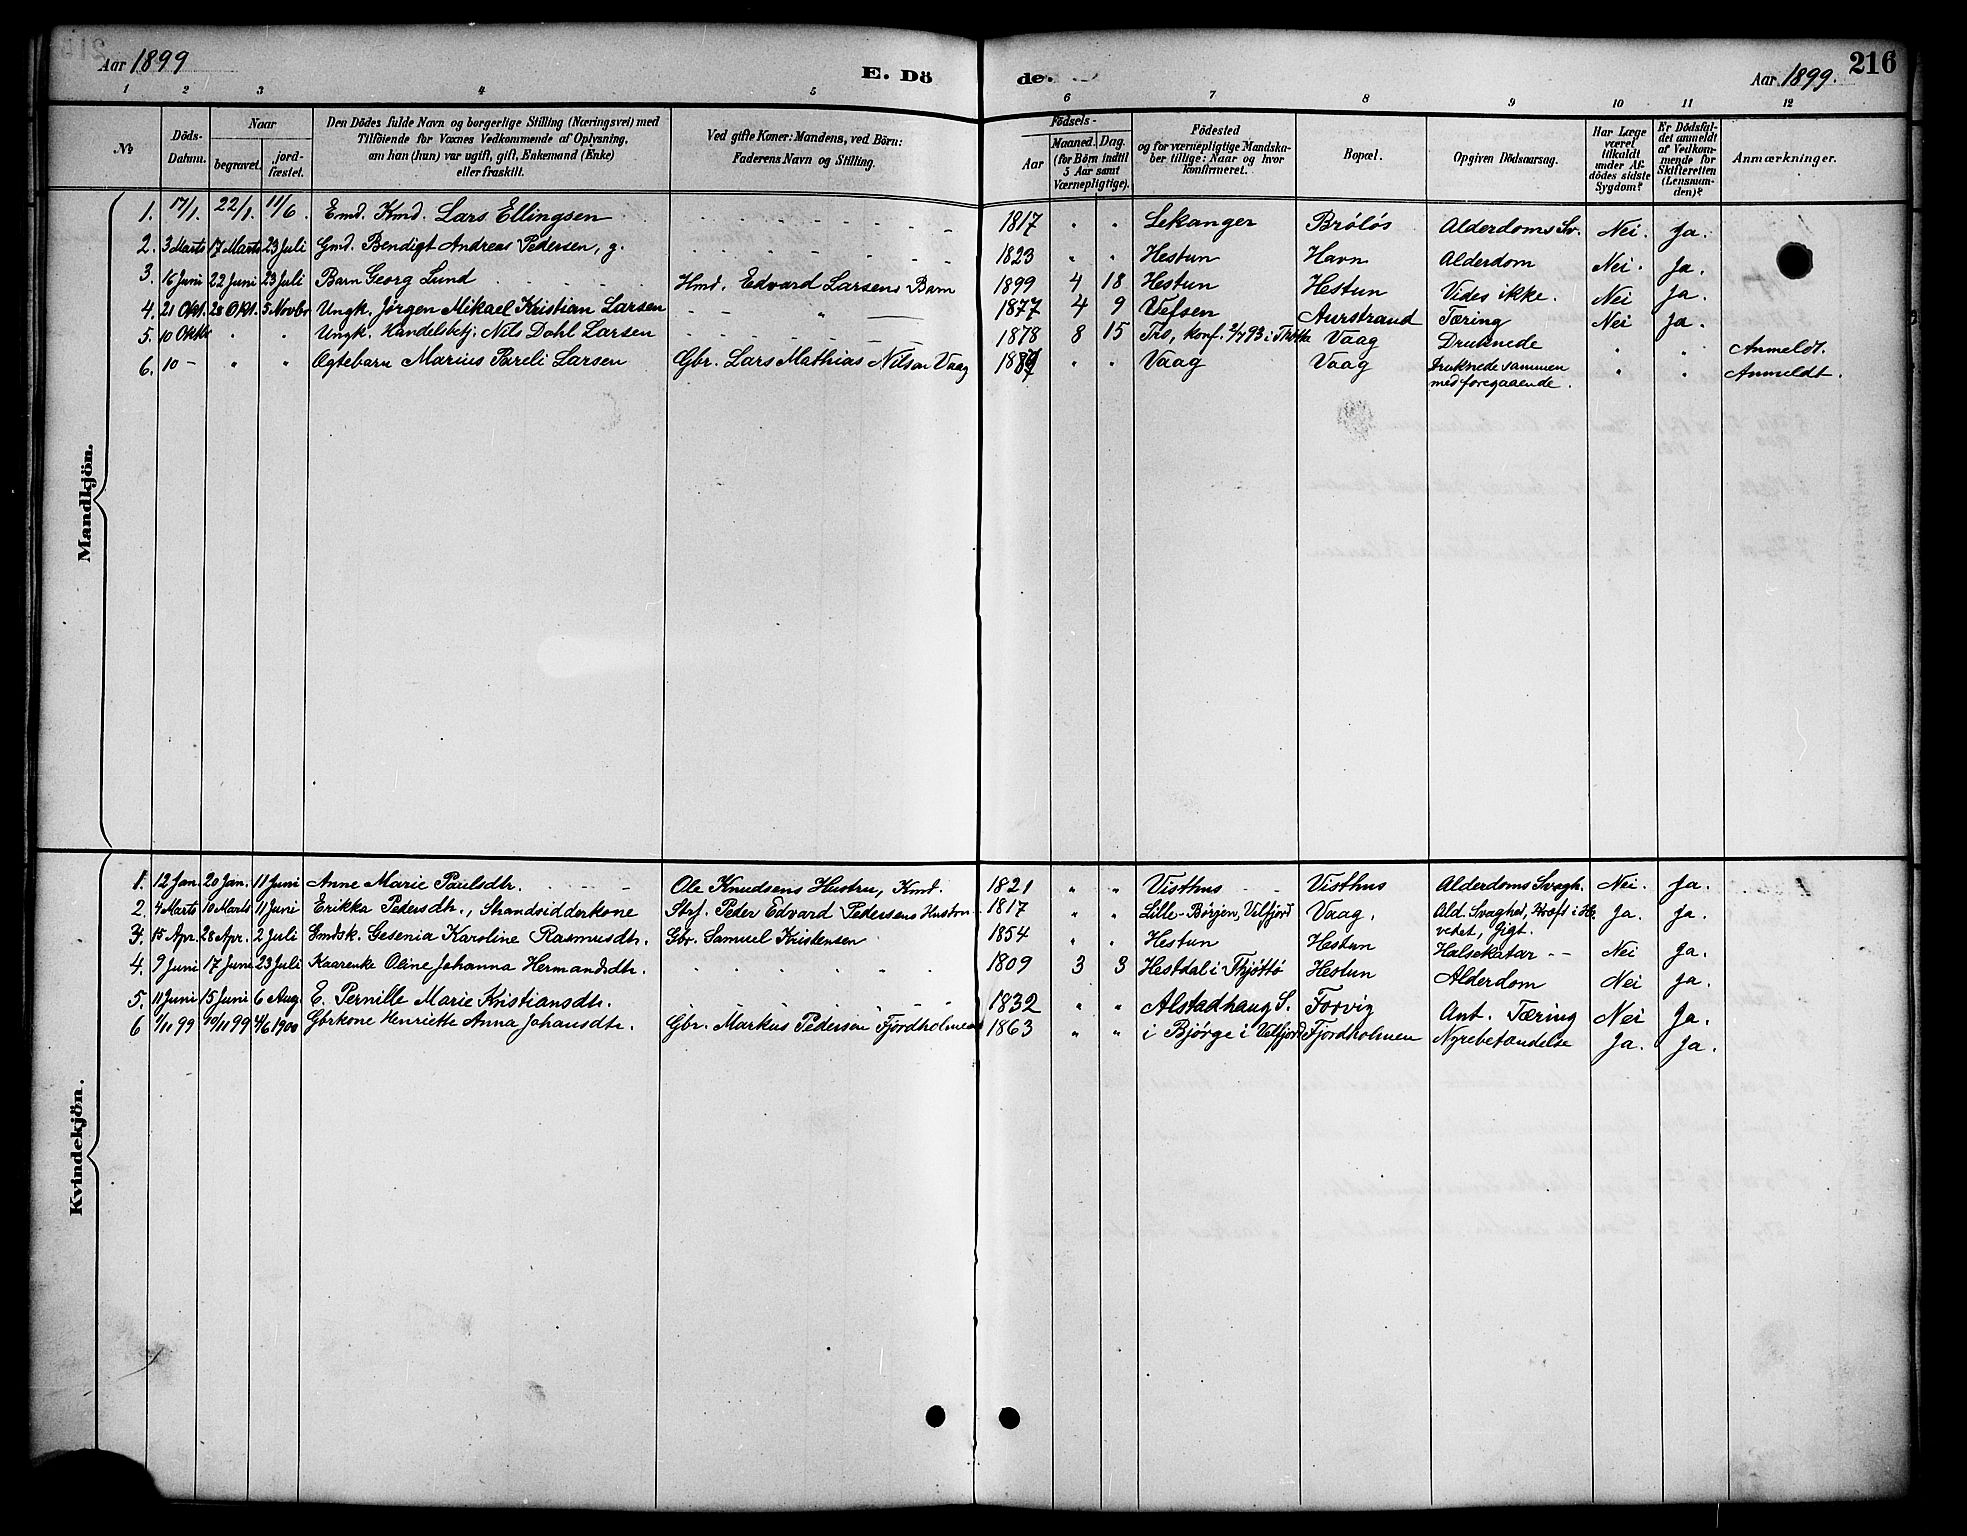 Aar 1899
E. Dö
de.
Aar 1899.
216
1 2 3 4 5 6 7 8 9 10 11 12
No
Döds-Datum.
Naar
begravet.
jord-fæstet.
Den Dödes fulde Navn og borgerlige Stilling (Næringsvei) med
Tilföiende for Voxnes Vedkommende af Oplysning,
om han (hun) var ugift, gift, Enkemand (Enke)
eller fraskilt.
Ved gifte Koner: Mandens, ved Börn:
Faderens Navn og Stilling.
Födsels-
Aar
Maaned. Dag.
(for Börn indtil
5 Aar samt
Værnepligtige).
Födested
og for værnepligtige Mandska-
ber tillige: Naar og hvor
konfirmeret.
Bopæl.
Opgiven Dödsaarsag.
Har Læge
været
tilkaldt
under Af-
dödes sidste
Sygdom?
Er Dödsfal-
det anmeldt
af Vedkom-
mende for
Skifteretten
(Lensman-
den)?
Anmærkninger.
Mandkjön.
1. 17/1. 22/1. 11/6. Emd. Kmd. Lars Ellingsen 1817 " " Lekanger Brøløs Alderdoms Sv. Nei. Ja.
2. 3 Marts 17 Marts 23 Juli Gmd. Bendigt Andreas Pedersen, g. 1823 " " Hestun Havn Alderdom Nei. Ja.
3. 16 Juni 22 Juni 23 Juli Barn Georg Lund Hmd. Edvard Larsens Barn 1899 4 18 Hestun Hestun Vides ikke. Nei Ja.
4. 21 Okt. 28 Okt. 5 Novbr Ungk. Jörgen Mikael Kristian Larsen - - " — 1877 4 9 Vefsen Aurstrand Tæring Nei Ja.
5. 10 Oktbr " " Ungk. Handelsbetj. Nils Dahl Larsen 1878 8 15 Tro, konf. 2/7 93 i Vaag Druknede " " Anmeldt.
6. 10 - " " Ogtebarn Marius Pareli Larsen Gbr. Lars Mathias Nilson Vaag " " Vaag Vaag Druknede sammen
med foregaaende. " " Anmeldt.
Kvindekjön.
1. 12 Jan. 20 Jan. 11 Juni Anne Marie Paulsdtr. Ole Knudsens Hustru, Kmd. 1821 " " Visthus Visthus Alderdoms Svagh. Nei. Ja.
2. 4 Marts 10 Marts 11 Juni Erikka Pedersdtr., Strandsidderkone Strf. Peder Edvard Pedersens Hustru 1817 " " Lille-Börjen, Velfjord Vaag, Ald. Svaghed, Kræft i Ho-
vedet, Gigt. Ja. Ja.
3. 15 Apr. 28 Apr. 2 Juli Gmdsk. Gesenia Karoline Rasmusdtr. Gbr. Samuel Kristensen 1854 " " Hestun Hestun Halsekatar -- Nei Ja.
4. 9 Juni 17 Juni 23 Juli Kaarenke Oline Johanna Hermansdtr. 1809 3 3 Hestdal i Tjøttö Hestun Alderdom Nei Ja.
5. 11 Juni 15 Juni 6 Aug. E. Pernille Marie Kristiansdtr. 1832 " " Alstadhaug S. Forvig Ant. Tæring Nei Ja.
6 1/11 99 10/11 99 4/6 1900 Gbrkone Henriette Anna Johansdtr. Gbr. Markus Pederson Fjordholmen 1863 " " i Bjørge i Velfjord Fjordholmen Nyrebetændelse Ja. Ja.